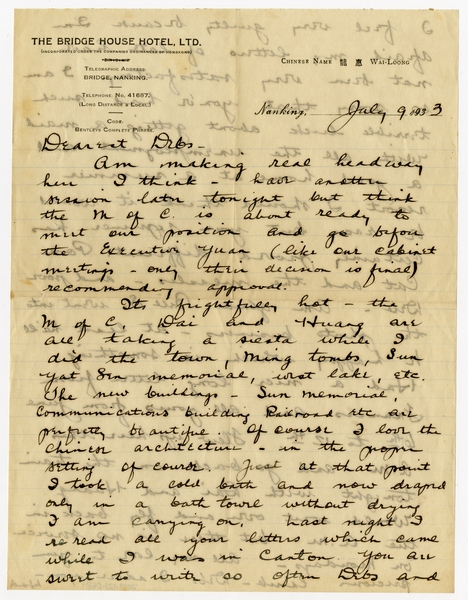 THE BRIDGE HOUSE HOTEL, LTD.
(INCORPORATED UNDER THE COMPANIES ORDINANCES OF HONGKONG)
TELEGRAPHIC ADDRESS:
BRIDGE, NANKING.
TELEPHONE NO. 41687.
(LONG DISTANCE & LOCAL)
CODE:
BENTLEYS COMPLETE PHRASE.
CHINESE NAME 龍 惠 WAI-LOONG
Nanking, July 9 1933
Dearest Debs-
Am making real headway
here I think - have another
session later tonight but think
the M of C. is about ready to
meet our position and go before
the Executive Yuan (like our cabinet
meetings - only their decision is final)
recommending approval.
Its frightfully hot - the
M of C, Dai and Huang are
all taking a siesta while I
did the town, Ming tombs, Sun
Yat Sen memorial, west lake, etc.
The new buildings - Sun Memorial,
Communications building Railroad etc are
perfectly beautiful. Of course I love the
Chinese architecture - in the proper
setting of course. Just at that point
I took a cold bath and now draped
only in a bath towel without drying
I am carrying on. Last night I
re read all your letters which came
while I was in Canton. You are
sweet to write so often Debs and